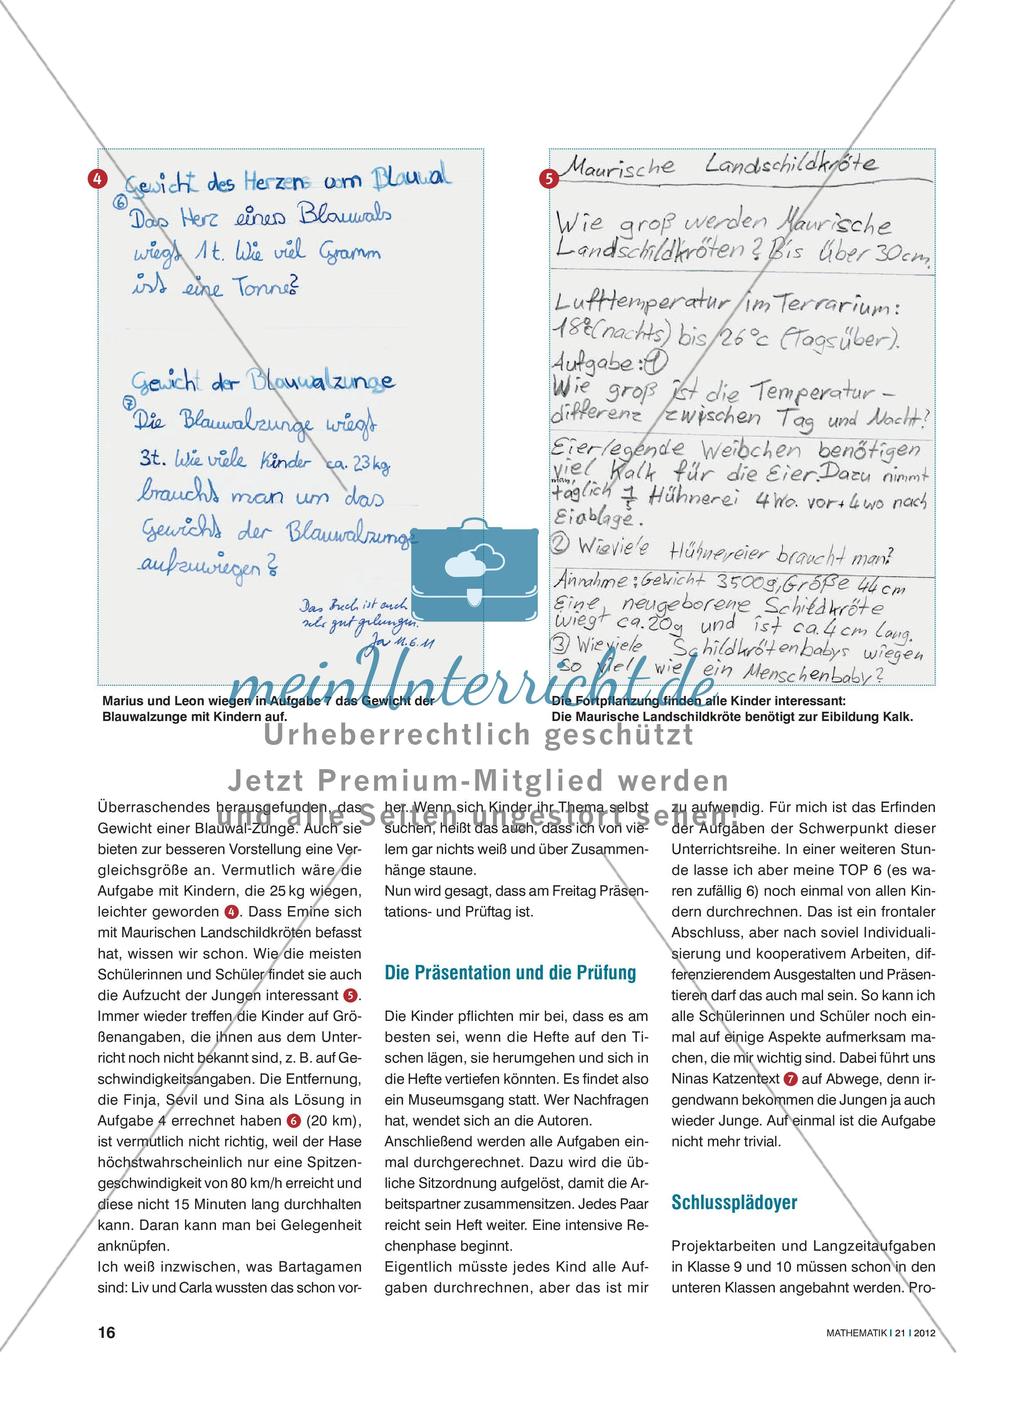 4
Gewicht des Herzens vom Blauwal
6
Das Herz eines Blauwals
wiegt 1t. Wie viel Gramm
ist eine Tonne?
Gewicht der Blauwalzunge
7
Die Blauwalzunge wiegt
3t. Wie viele Kinder ca. 23kg
braucht man um das
Gewicht der Blauwalzunge
aufzuwiegen?
Das Buch ist auch
sehr gut gelungen.
11.6.11
Marius und Leon wiegen in Aufgabe 7 das Gewicht der
Blauwalzunge mit Kindern auf.
5
Maurische Landschildkröte
Wie groß werden Maurische
Landschildkröten? Bis über 30cm.
Lufttemperatur im Terrarium:
18°C(nachts) bis 26°c (Tagsüber).
Aufgabe: 1
Wie groß ist die Temperatur-
differenz zwischen Tag und Nacht?
Eierlegende Weibchen benötigen
viel Kalk für die Eier. Dazu nimmt
man
täglich Hühnerei 4 Wo. vor + 4 wo nach
Eiablage.
2 Wieviele Hühnereier braucht man?
Annahme: Gewicht 3500g, Größe 44cm
Eine neugeborene Schildkröte
wiegt ca. 20g und ist ca. 4cm lang.
3 Wieviele Schildkrötenbabys wiegen
so viel wie ein Menschenbaby?
Die Fortpflanzung finden alle Kinder interessant:
Die Maurische Landschildkröte benötigt zur Eibildung Kalk.
meinUnterricht.de
Urheberrechtlich geschützt
Jetzt Premium-Mitglied werden
und alle Seiten ungestört sehen!
Überraschendes herausgefunden, das
Gewicht einer Blauwal-Zunge. Auch sie
bieten zur besseren Vorstellung eine Ver-
gleichsgröße an. Vermutlich wäre die
Aufgabe mit Kindern, die 25 kg wiegen,
leichter geworden 4. Dass Emine sich
mit Maurischen Landschildkröten befasst
hat, wissen wir schon. Wie die meisten
Schülerinnen und Schüler findet sie auch
die Aufzucht der Jungen interessant 5.
Immer wieder treffen die Kinder auf Grö-
ßenangaben, die ihnen aus dem Unter-
richt noch nicht bekannt sind, z. B. auf Ge-
schwindigkeitsangaben. Die Entfernung,
die Finja, Sevil und Sina als Lösung in
Aufgabe 4 errechnet haben 6 (20 km),
ist vermutlich nicht richtig, weil der Hase
höchstwahrscheinlich nur eine Spitzen-
geschwindigkeit von 80 km/h erreicht und
diese nicht 15 Minuten lang durchhalten
kann. Daran kann man bei Gelegenheit
anknüpfen.
Ich weiß inzwischen, was Bartagamen
sind: Liv und Carla wussten das schon vor-
her. Wenn sich Kinder ihr Thema selbst
suchen, heißt das auch, dass ich von vie-
lem gar nichts weiß und über Zusammen-
hänge staune.
Nun wird gesagt, dass am Freitag Präsen-
tations- und Prüftag ist.
Die Präsentation und die Prüfung
Die Kinder pflichten mir bei, dass es am
besten sei, wenn die Hefte auf den Ti-
schen lägen, sie herumgehen und sich in
die Hefte vertiefen könnten. Es findet also
ein Museumsgang statt. Wer Nachfragen
hat, wendet sich an die Autoren.
Anschließend werden alle Aufgaben ein-
mal durchgerechnet. Dazu wird die üb-
liche Sitzordnung aufgelöst, damit die Ar-
beitspartner zusammensitzen. Jedes Paar
reicht sein Heft weiter. Eine intensive Re-
chenphase beginnt.
Eigentlich müsste jedes Kind alle Auf-
gaben durchrechnen, aber das ist mir
zu aufwendig. Für mich ist das Erfinden
der Aufgaben der Schwerpunkt dieser
Unterrichtsreihe. In einer weiteren Stun-
de lasse ich aber meine TOP 6 (es wa-
ren zufällig 6) noch einmal von allen Kin-
dern durchrechnen. Das ist ein frontaler
Abschluss, aber nach soviel Individuali-
sierung und kooperativem Arbeiten, dif-
ferenzierendem Ausgestalten und Präsen-
tieren darf das auch mal sein. So kann ich
alle Schülerinnen und Schüler noch ein-
mal auf einige Aspekte aufmerksam ma-
chen, die mir wichtig sind. Dabei führt uns
Ninas Katzentext 7 auf Abwege, denn ir-
gendwann bekommen die Jungen ja auch
wieder Junge. Auf einmal ist die Aufgabe
nicht mehr trivial.
Schlussplädoyer
Projektarbeiten und Langzeitaufgaben
in Klasse 9 und 10 müssen schon in den
unteren Klassen angebahnt werden. Pro-
16
MATHEMATIK I 21 I 2012